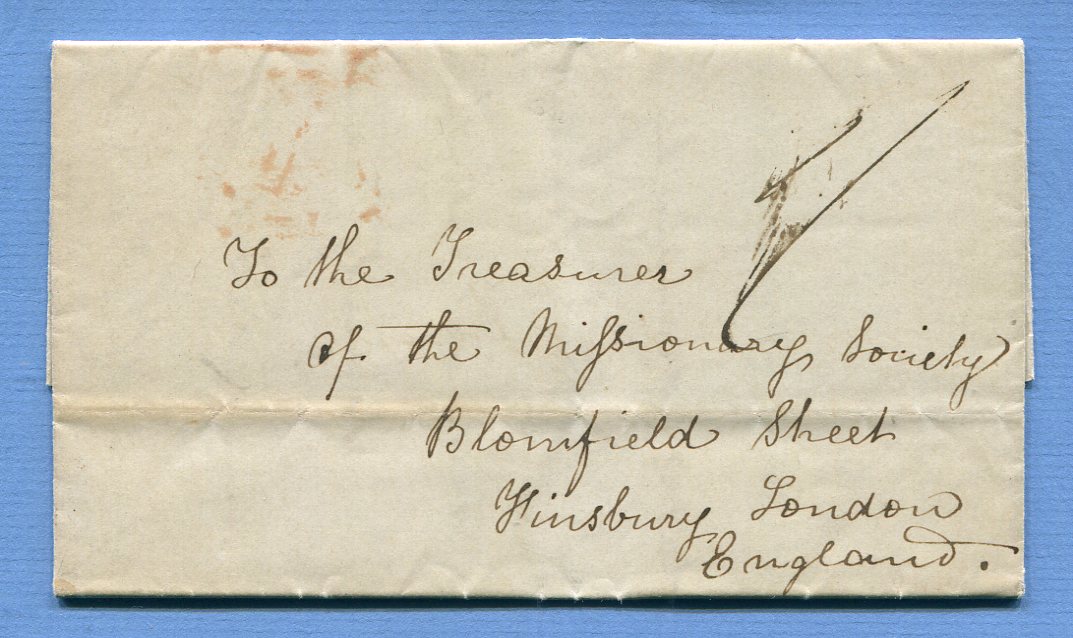 To the Treasurer
of the Missionary Society
Blomfield Street
Finsbury London
England.